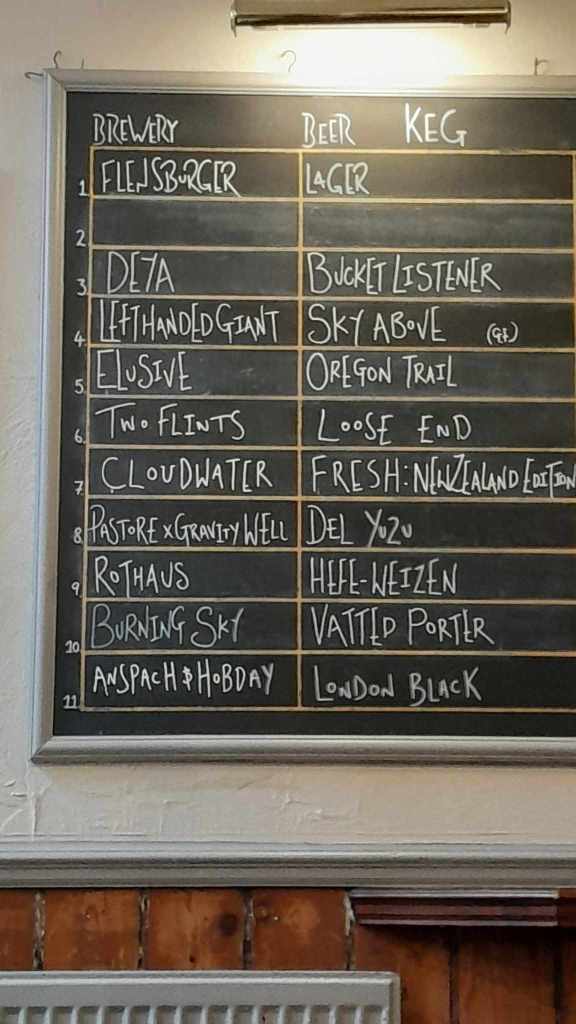 BREWERY BEER KEG
1 FLENSBURGER LAGER
2
3 DEYA BUCKET LISTENER
4 LEFTHANDED GIANT SKY ABOVE (GF)
5 ELUSIVE OREGON TRAIL
6 TWO FLINTS LOOSE END
7 CLOUDWATER FRESH: NEW ZEALAND EDITION
8 PASTORE X GRAVITY WELL DEL YUZU
9 ROTHAUS HEFE-WEIZEN
10 BURNING SKY VATTED PORTER
11 ANSPACH & HOBDAY LONDON BLACK